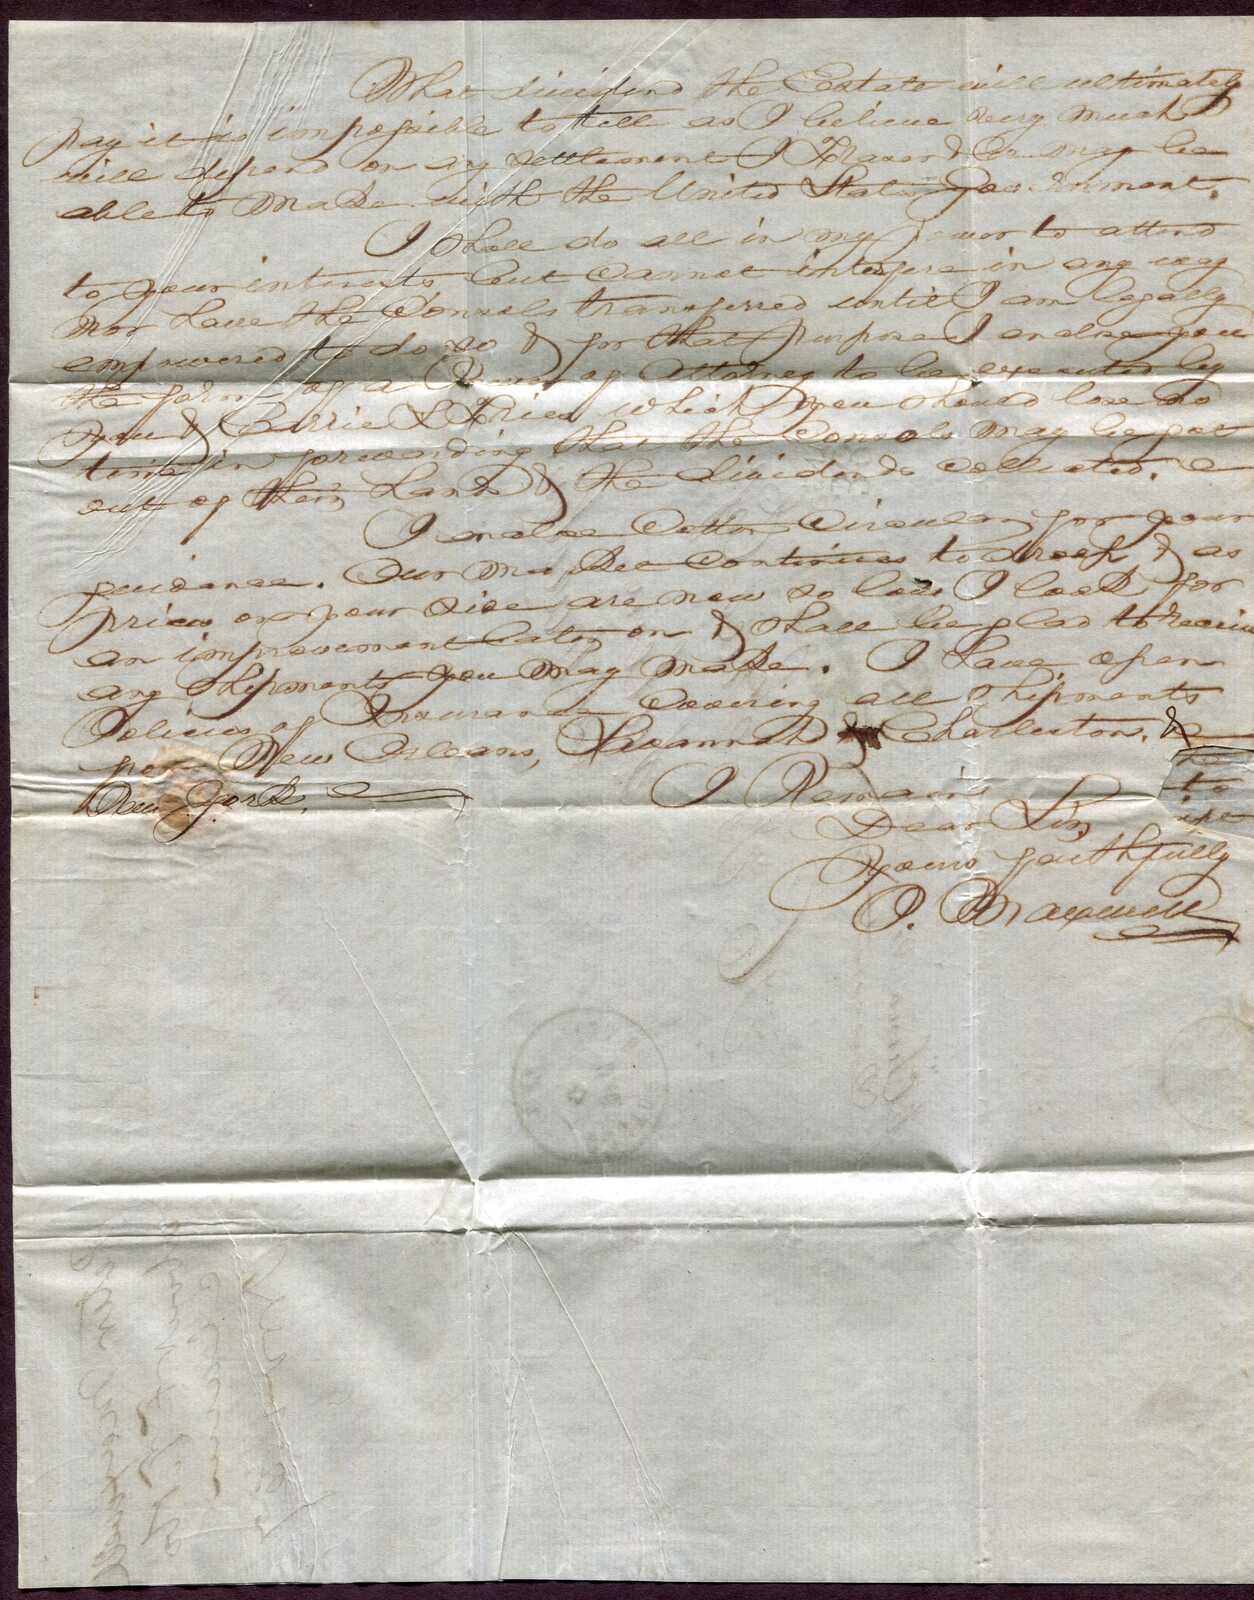 What dividend the Estate will ultimately
pay it is impossible to tell as I believe very much
will depend on any settlement J Fraser & Co. may be
able to make with the United States Government.
I shall do all in my power to attend
to your interests, but cannot interfere in any way
nor have the Consols transferred until I am legally
empowered to do so & for that purpose I enclose you
the form of a Power of Attorney to be executed by
you & which you should lose no
time in forwarding that the Consols may be got
out of their hands & the dividends collected.
I enclose Cotton Circular for your
guidance. Our Market continues to droop & as
prices on your side are now so low I look for
an improvement later on & shall be glad to receive
any shipments you may make. I have open
Policies of Insurance covering all shipments
per New Orleans, Savannah Charleston, &
New York.
I Remain
Dear Sir,
Yours faithfully
J. Maxwell
to